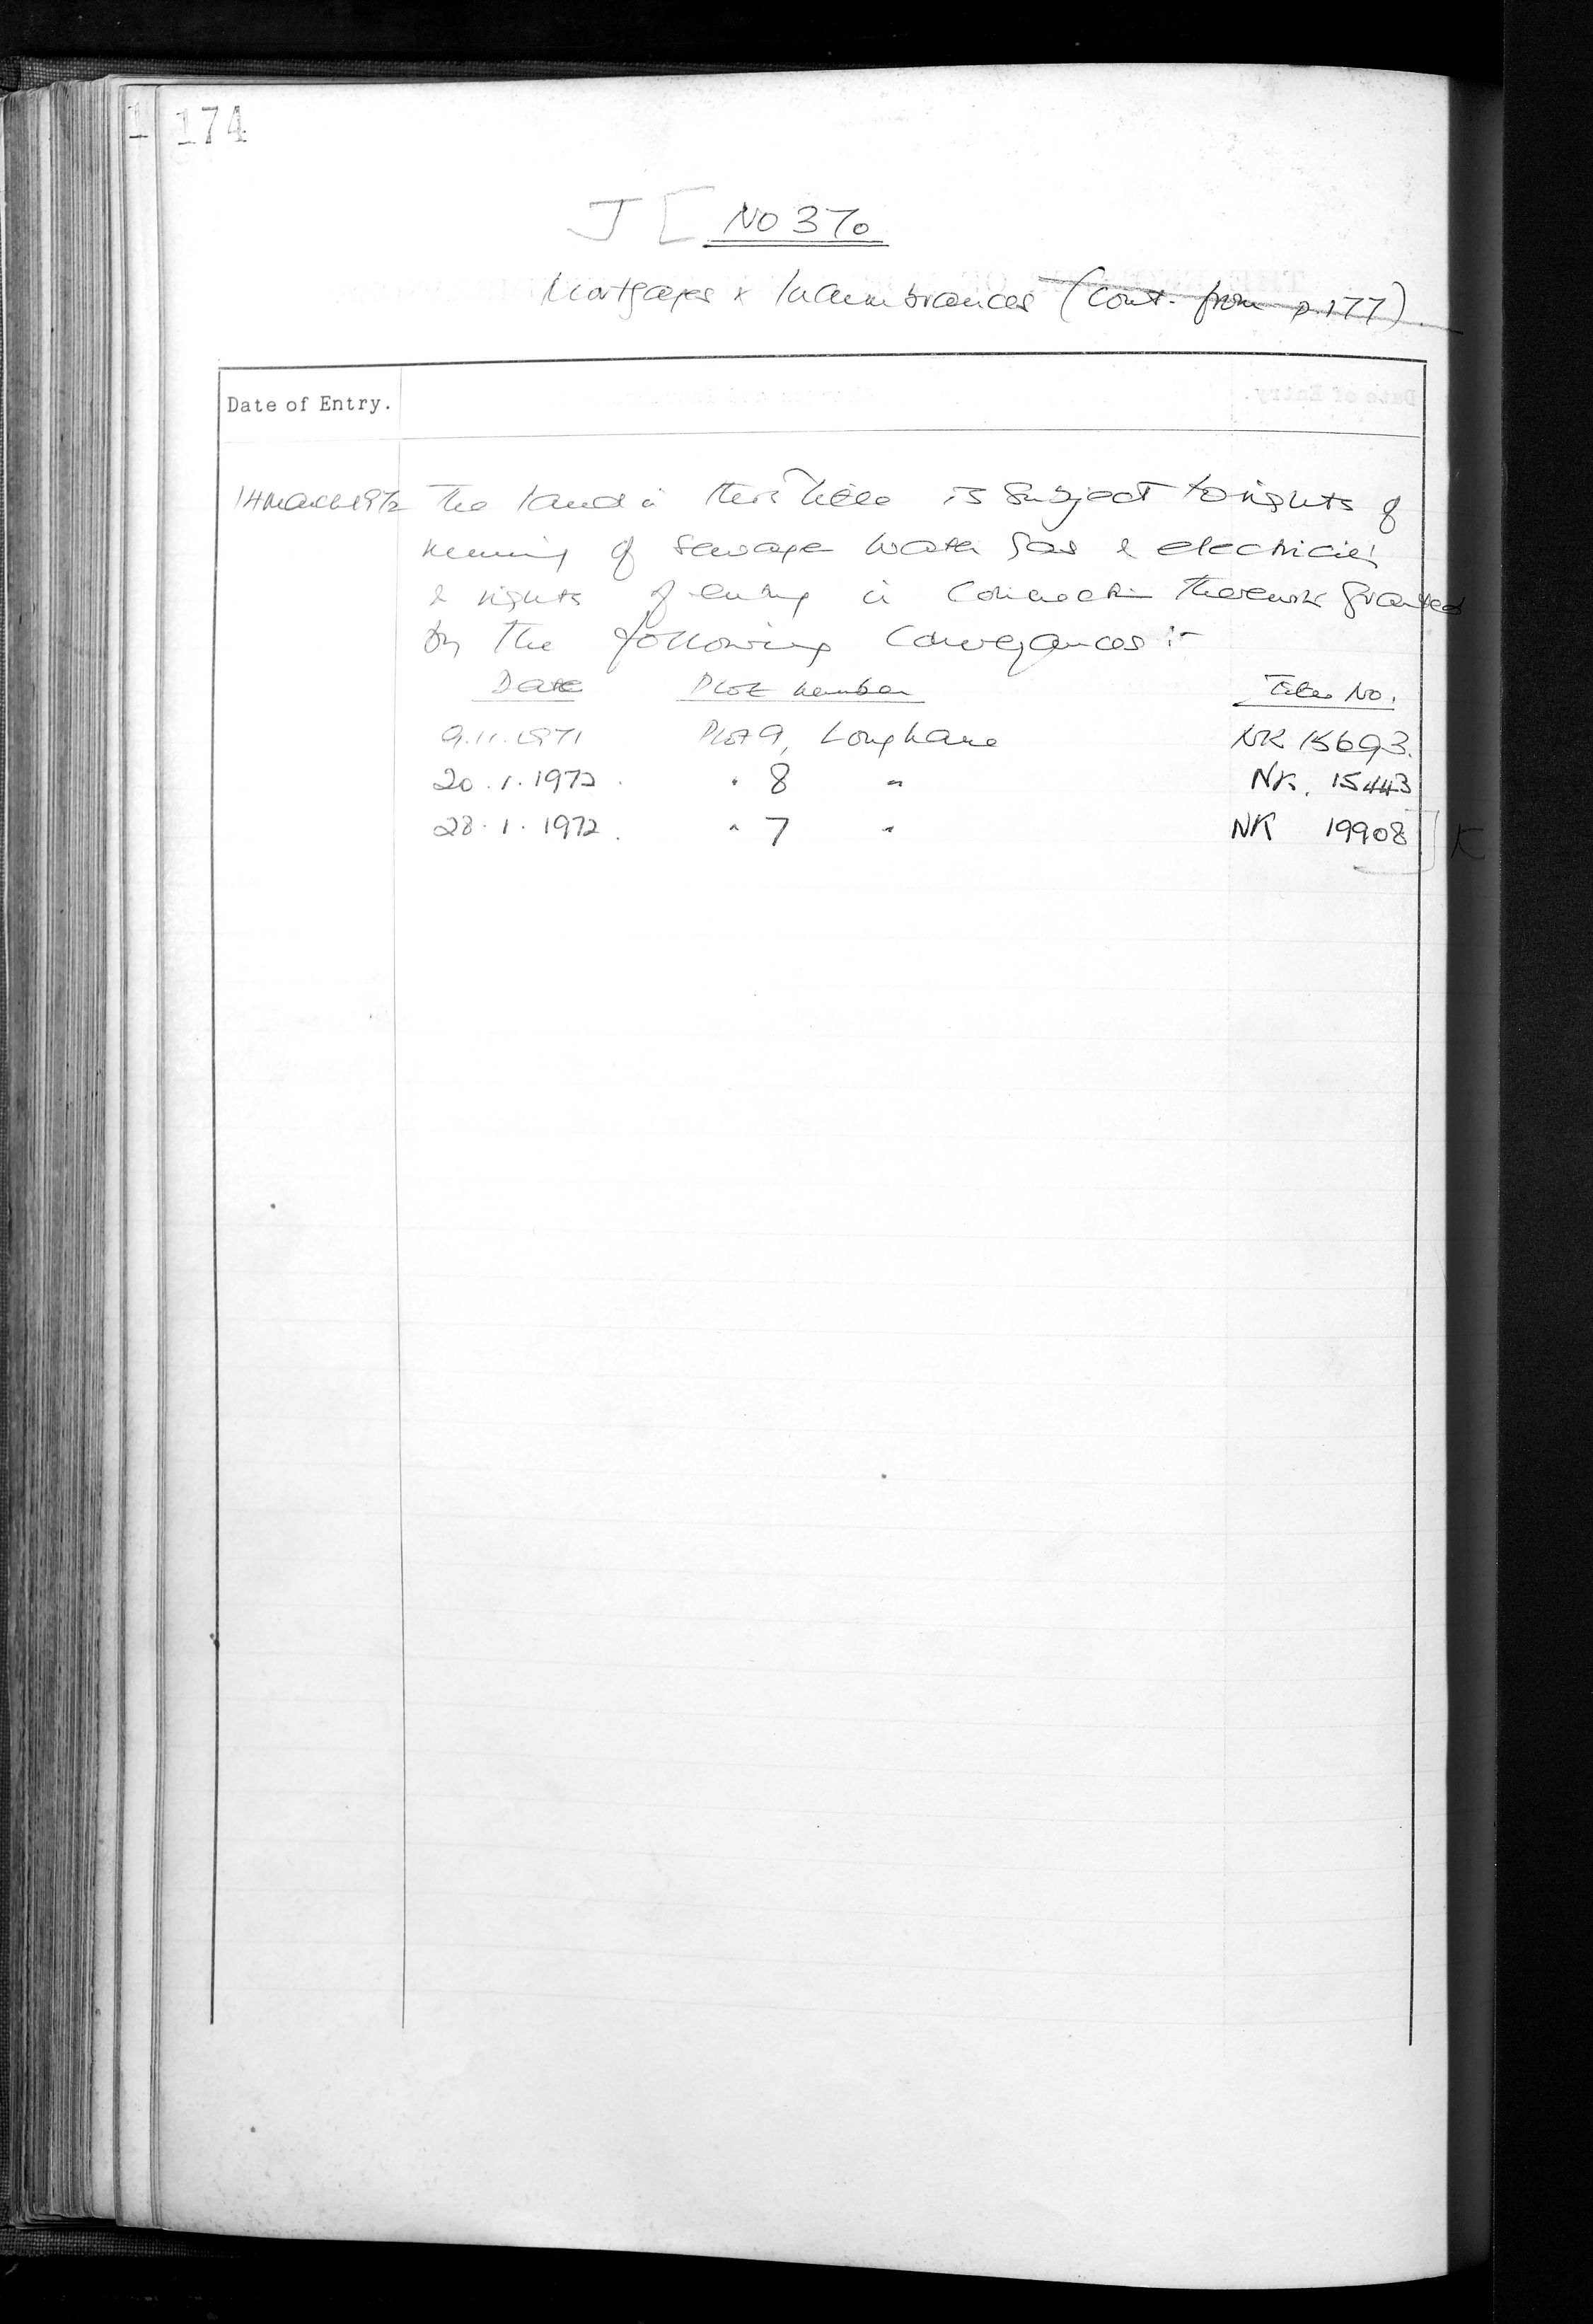 1 174
J [ No 370
Mortgages & Incumbrances (Cont. from p.177).
Date of Entry.
14 March 1972 The land in this title is subject to rights of
running of sewage water gas & electricity
& rights of entry in connection therewith granted
by the following Conveyances :-
Date Plot number Title No.
9.11.1971 Plot 9, Long Lane NK 15693.
20.1.1972. " 8 " NK. 15443
28.1.1972. " 7 " NK 19908 ] K